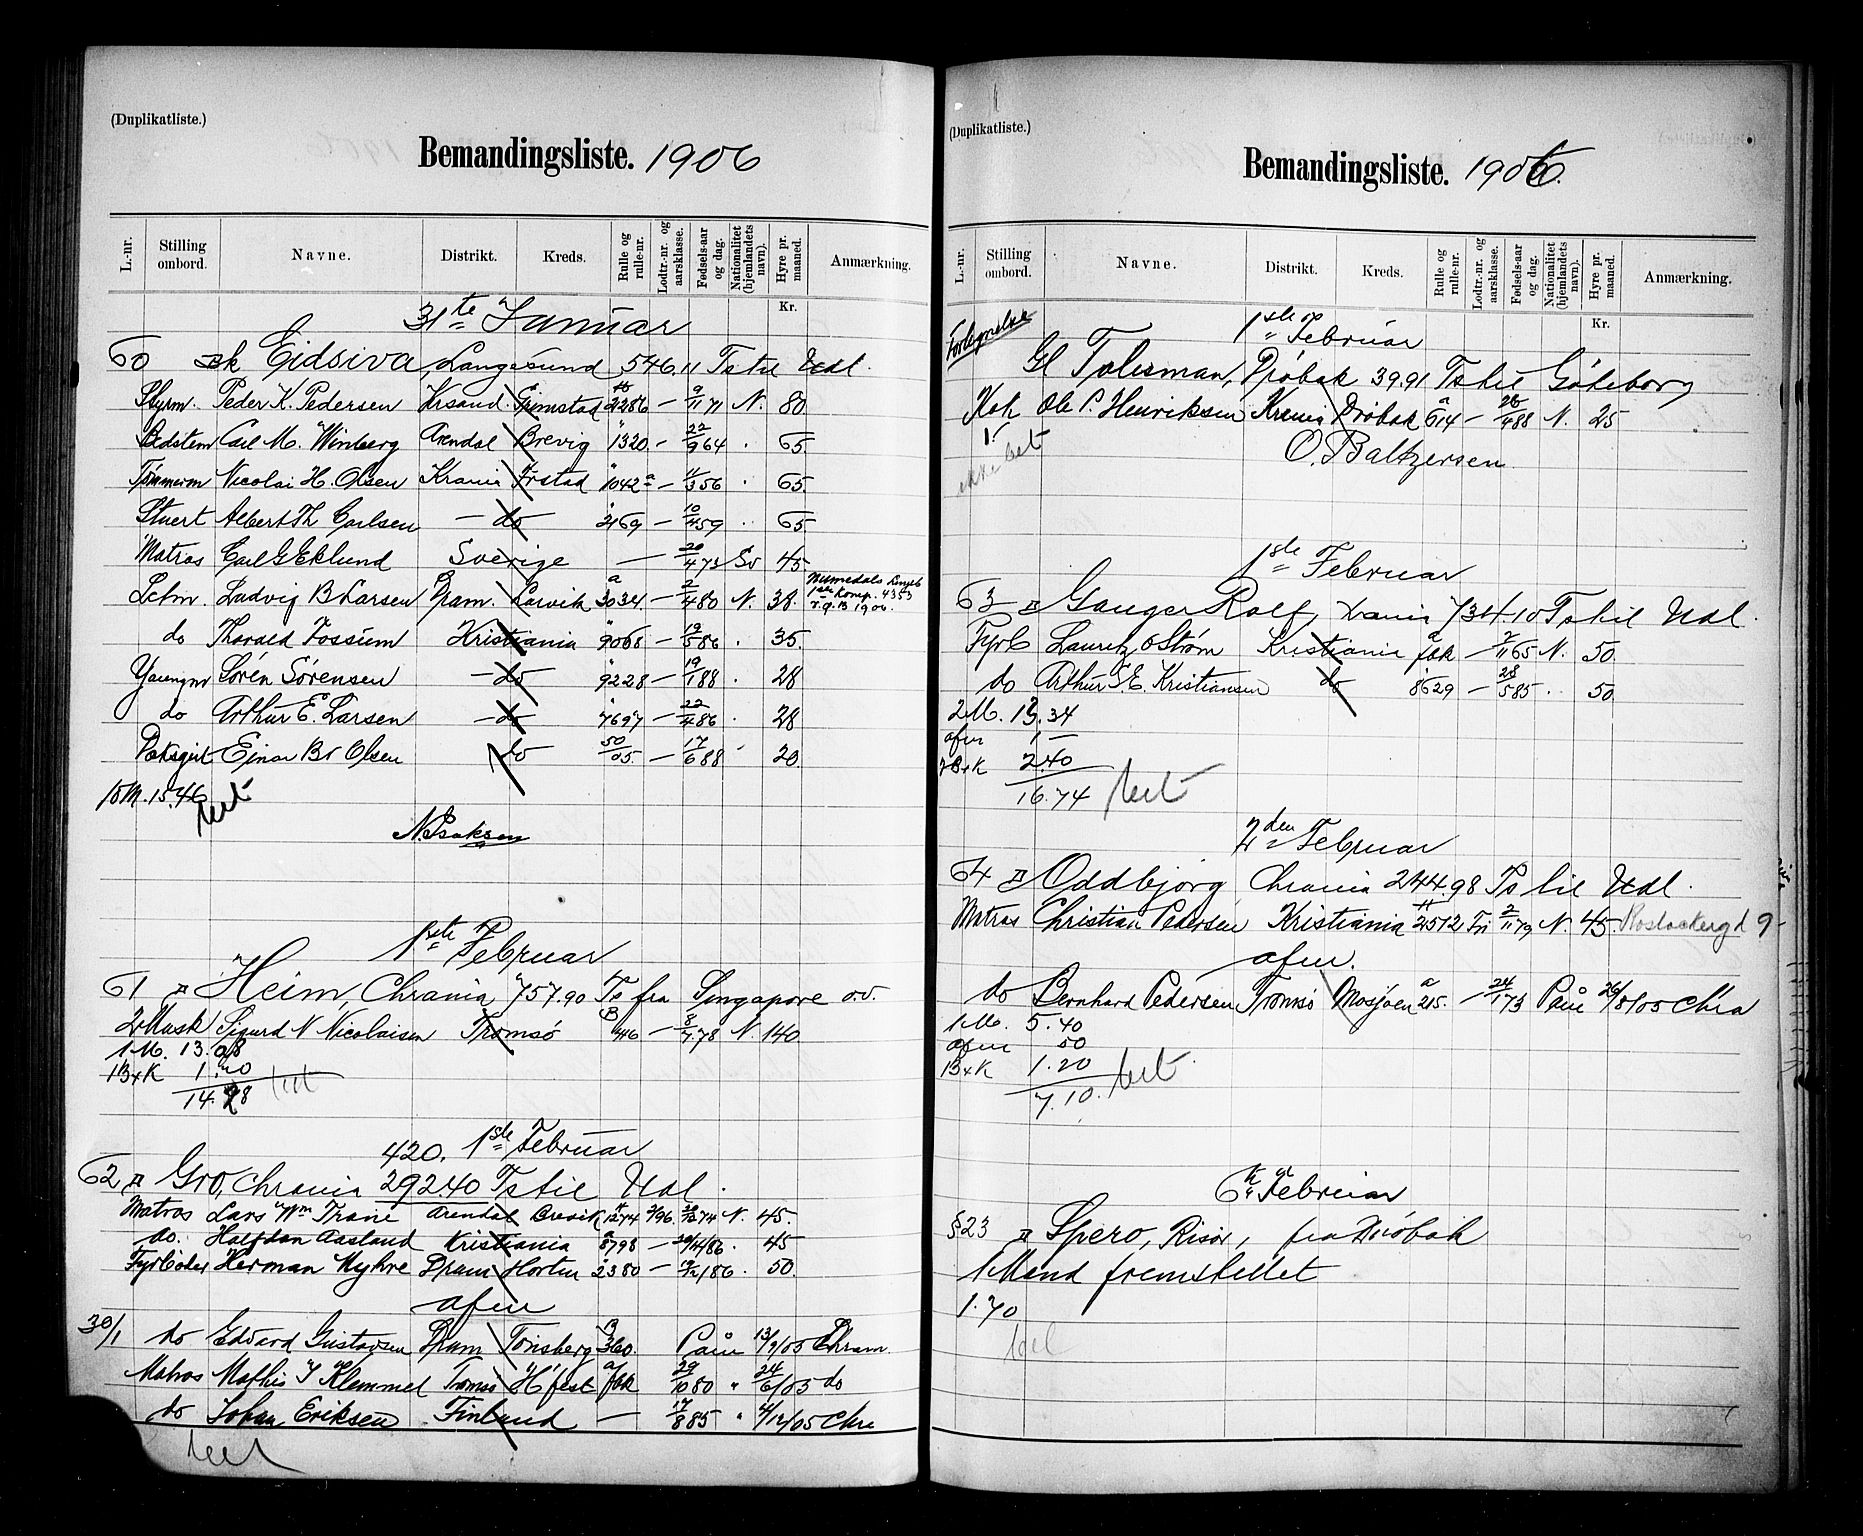 (Duplikatliste.)
Bemandingsliste. 1906
L.-nr. Stilling ombord. Navne. Distrikt. Kreds. Rulle og rulle-nr. Lodtr.-nr. og aarsklasse. Fødsels-aar og dag. Nationalitet (hjemlandets navn). Hyre pr. maaned. Anmærkning.
Kr.
31te Januar
60 Sk Eidsiva, Langesund 546.11 Ts til Udl.
Styrm. Peder K. Pedersen Krsand Grimstad 2286 — 9/11 71 N. 80
Bedstem Carl M. Winberg Arendal Brevig 1320 — 22/9 64 . 65
Tømmerm Nicolai H. Olsen Krania Frstad 1042a — 11/3 56 . 65
Stuert Albert Th Carlsen — do 2169 — 10/4 59 . 65
Matros Carl G Eklund Sverige — 20/4 73 Sv 45
Letm. Ludvig B Larsen Dram. Larvik a 3034 — 2/4 80 N. 38. 1ste Komp. 4353
do Thorald Fossum Kristiania 9068 — 19/5 86 . 35.
Youngm Sørén Sørensen — do 9228 — 19/1 88 . 28
do Arthur E. Larsen — do 7697 — 22/4 86 . 28
Dæksgut Ejnar Br Olsen do 50/05. — 17/6 88 20
10 M. 15.46 bet
N. Isaksen
1ste Februar
61 Heim, Chrania 757.90 Ts fra Singapore o.v.
2 Mask Sigurd N Nicolaisen Tromsö B 416 — 8/7 78 N. 140
1 M. 13.08
1 B+K 1.20
14.28 bet
420. 1ste Februar
62 Gro, Chrania 292.40 Ts til Udl.
Matros Lars Wm Trane Arendal Brevik 1274 2/96. 20/12 74 N. 45.
do. Halfdan Aasland Kristiania a 8798 — 20/11/86 . 45
Fyrböder Herman Myhre Dram Horten 2380 — 19/2/86 . 50.
afm
30/1 do Edvard Gustavsen Dram Tönsberg B 360. Paam 13/9/05 Dram
Matros Mathis I Klemmel Tromsö Hfest a/fbk 29/10 80 " 24/6/05 do
do Johan Eriksen Finland — 17/8 85 " 4/12/05 Chra
bet
(Duplikatliste.)
Bemandingsliste. 1906.
L.-nr. Stilling ombord. Navne. Distrikt. Kreds. Rulle og rulle-nr. Lodtr.-nr. og aarsklasse. Fødsels-aar og dag. Nationalitet (hjemlandets navn). Hyre pr. maaned. Anmærkning.
Kr.
1ste Februar
Gl Talisman, Dröbak 39.91 Ts til Göteborg
Kok Ole P. Henriksen Krania Dröbak a 614 — 26/4 88 N. 25
1.-
ikke bet
O. Baltzersen
1ste Februar
63 Ganger Rolf, Krania 734.10 Ts til Udl.
Fyrb Lauritz O Ström Kristiania a fbk — 7/11 65 N. 50.
do Arthur E. Kristiansen do 8629 — 28/5 85 . 50
2 M. 13.34
afm 1 —
2 B+K 2.40
16.74 bet
2den Februar
64 Oddbjörg Chrania 244.98 Ts til Udl.
Matros Christian Pedersen Kristiania 2572 Fri 2/11 79 N. 45. 9-
afm.
do Bernhard Pedersen Tromsö Mosjöen a 215. — 24/1 73 Paam 26/8/05 Chra
1 M. 5.40
afm 50
1 B+K 1.20
7.10. bet
6te Februar
§23 Spero, Risör, fra Dröbak
1 Mand fremstillet
1.70
bet